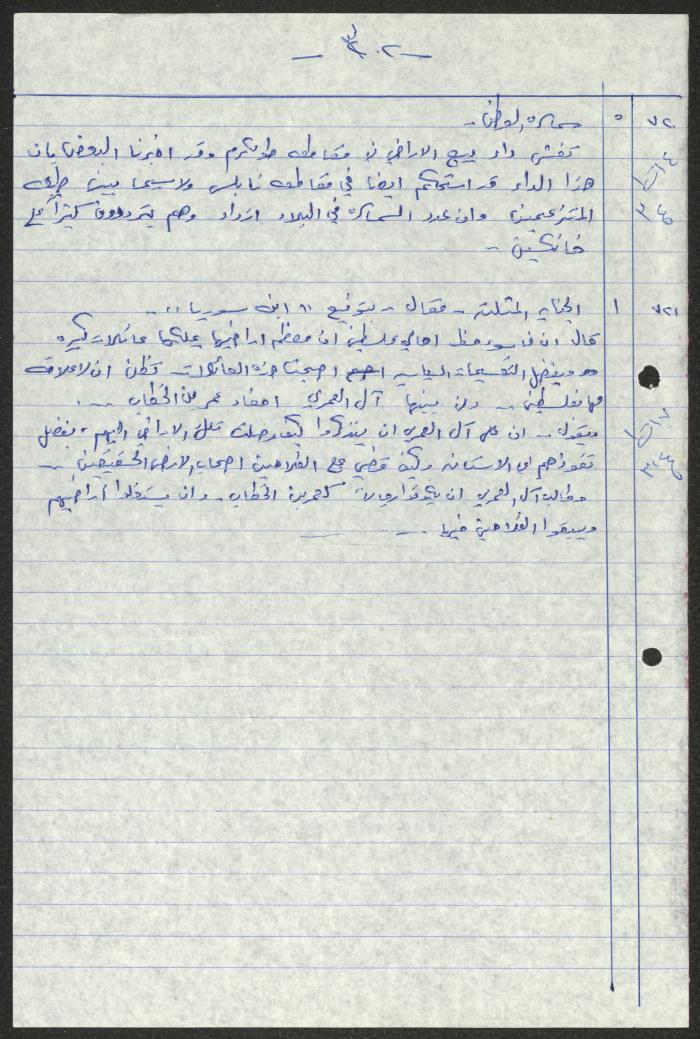 - ٢٠٢ -
٧٢٠ ٥ سماسرة الوطن -
تفشى داء بيع الاراضي في مقاطعة طولكرم وقد اخبرنا البعض بان
هذا الداء قد استحكم ايضا في مقاطعة نابلس ولا سيما بين طبقة
المتزعمين وان عدد السماسرة في البلاد ازداد وهم يترددون كثيرا على
خانكسين -
٧٢١ ١ الجناية المثلثة - مقال - بتوقيع "ابن سوريا" -
قال ان من سوء حظ اهالي فلسطين ان معظم اراضيها يملكها عائلات كبيرة
وبفضل التقسيمات السياسية اصبحت هذه العائلات تظن ان لا علاقة
لها بفلسطين - ومن بينها آل العمري احفاد عمر بن الخطاب -
ويقول - ان على آل العمري ان يتذكروا كيف وصلت تلك الاراضي اليهم، بفضل
نفوذهم في الاستانة وكيف قضي على الفلاحين اصحاب الارض الحقيقيين -
وطالب آل العمري ان يكونوا رجالا كعمر بن الخطاب - وان يستغلوا أراضيهم
ويبقوا الفلاحين فيها -